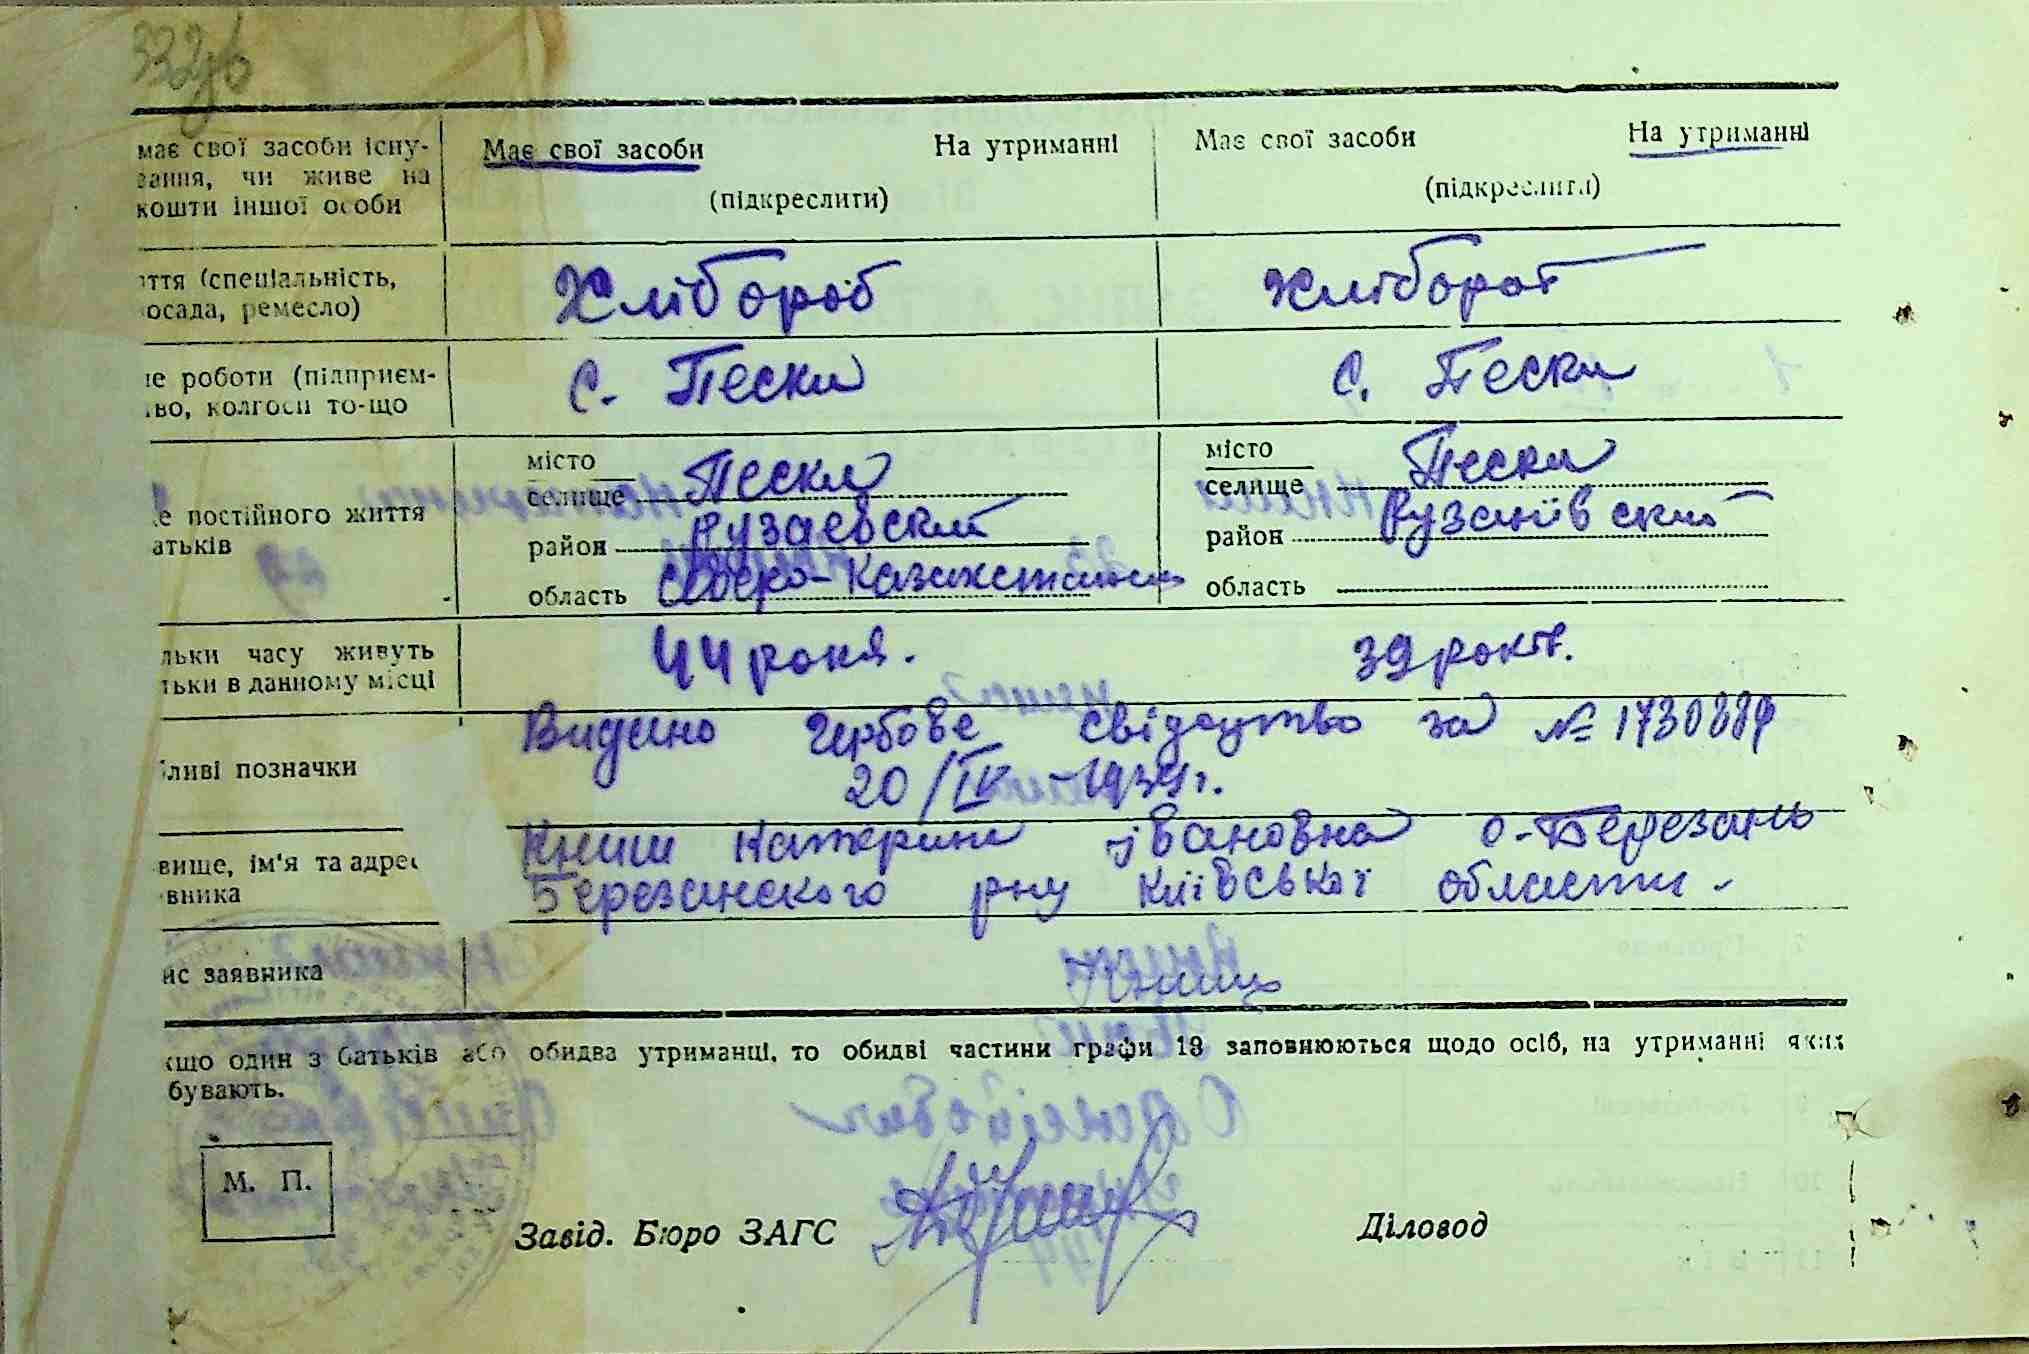 332зв
має свої засоби існу-
вання, чи живе на
кошти іншої особи
Має свої засоби На утриманні
(підкреслити)
Має свої засоби На утриманні
(підкреслити)
ття (спеціальність,
осада, ремесло)
Хлібороб
Хлібороб
це роботи (підприєм-
тво, колгосп то-що
с. Пески
с. Пески
це постійного життя
атьків
місто
селище Пески
район Рузаевский
область Северо-Казахстанск
місто
селище Пески
район Рузаївский
область
льки часу живуть
тьки в данному місці
44 роки.
39 років.
ливі позначки
Видано гербове свідоцтво за №
20/IV-1939г.
вище, ім'я та адрес
вника
Книш Катерина івановна с-Березань
Березанского рну київської області.
ис заявника
Книш
кщо один з батьків або обидва утриманці, то обидві частини графи 13 заповнюються щодо осіб, на утриманні яких
бувають.
М. П.
Завід. Бюро ЗАГС
Діловод